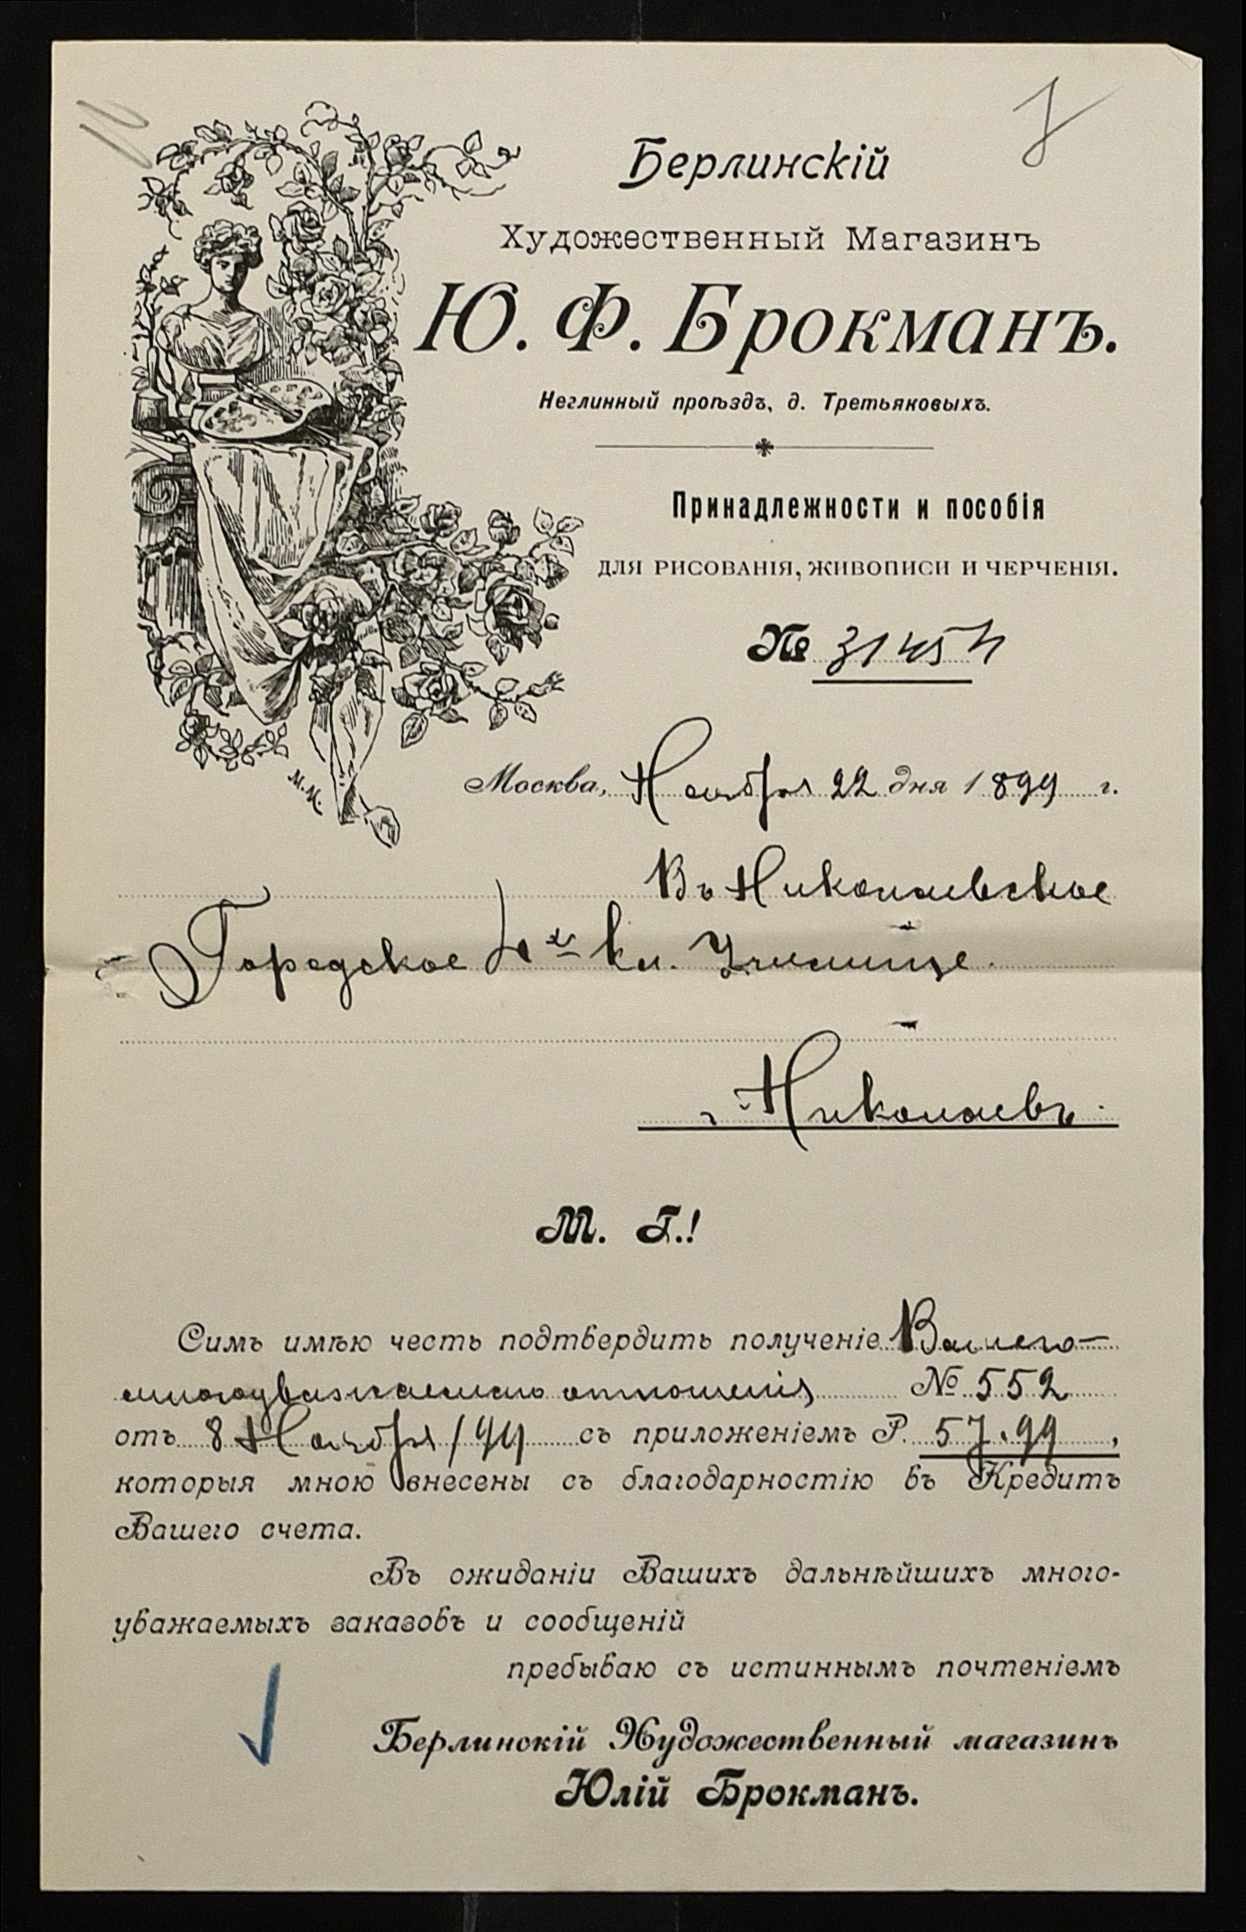 Берлинскій
Художественный Магазинъ
Ю. Ф. Брокманъ.
Неглинный проѣздъ, д. Третьяковыхъ.
Принадлежности и пособія
для рисованія, живописи и черченія.
№ 31454
М.М.
Москва, Ноября 22 дня 1899 г.
Въ Николаевское
Городское 4х кл. Училище.
г. Николаевъ.
М. Г.!
Симъ имѣю честь подтвердить полученіе Вашего
многоуважаемаго отношенія № 552
отъ 8 Ноября /99 съ приложеніемъ Р. 57.99,
которыя мною внесены съ благодарностію въ Кредитъ
Вашего счета.
Въ ожиданіи Вашихъ дальнѣйшихъ много-
уважаемыхъ заказовъ и сообщеній
пребываю съ истиннымъ почтеніемъ
Берлинскій Художественный магазинъ
Юлій Брокманъ.